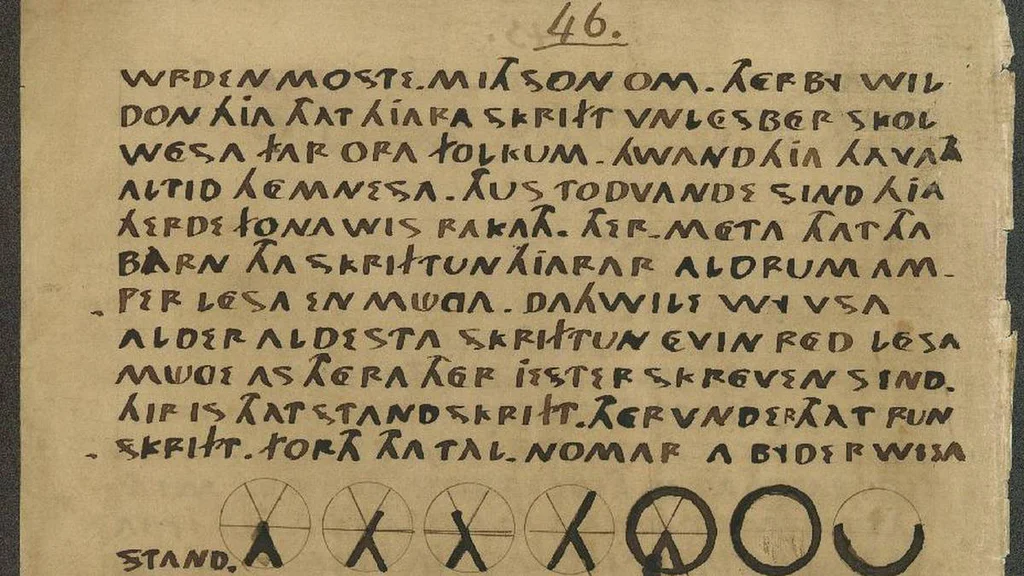 46.
WRDEN MOSTE. MITH SON OM. THERBY WIL
DON HIA THAT HIARA SKRIFT VNLESBER SKOL
WESA FAR ORA FOLKUM. HWAND HIA HAVATH
ALTID HEMNESA. THUS TODVANDE SIND HIA
HERDE FON A WIS RAKATH. THER-META THAT THA
BARN THA SKRIFTUN HIARAR ALDRUM AM-
PER LESA EN MÜGA. DAHWILE WY VSA
ALDER ALDESTA SKRIFTUN EVIN RED LESA
MÜGE AS THERA THER IESTER SKREVEN SIND.
HIR IS THAT STAND SKRIFT. THERVNDER THAT RUN
SKRIFT. FORTH THA TAL-NOMAR A BYDER WISA
STAND.